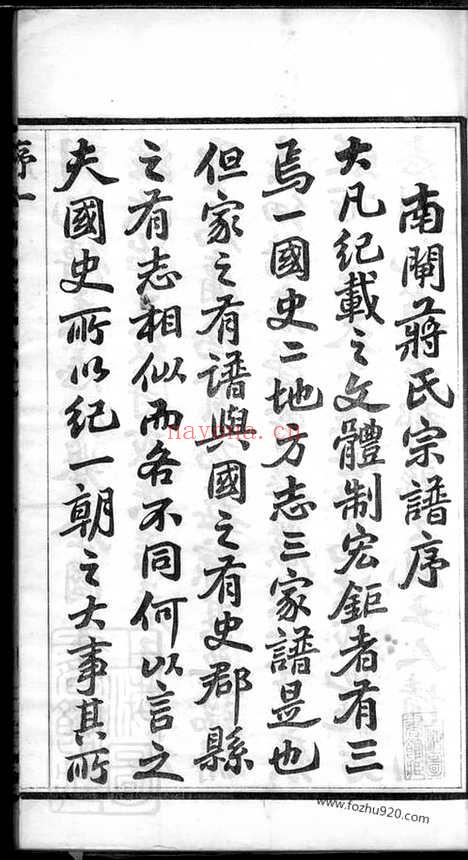 南閘蔣氏宗譜序
大凡紀載之文體制宏鉅者有三
焉一國史二地方志三家譜是也
但家之有譜與國之有史郡縣
之有志相似而各不同何以言之
夫國史所以紀一朝之大事其所
序一
nayona.cn
www.fozhu920.com